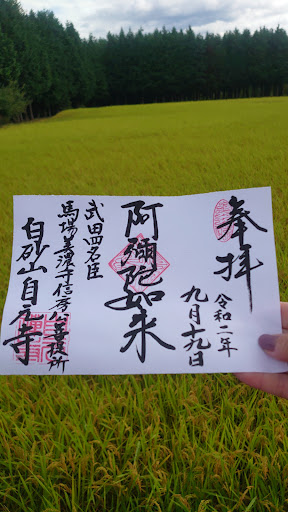 奉拝
令和二年
九月十九日
阿彌陀如来
武田四名臣
馬場美濃守信房公墓所
白砂山自元寺